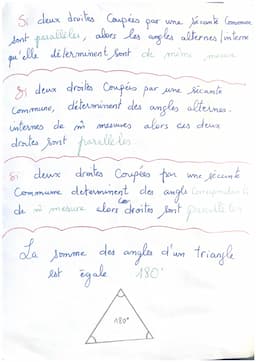 Si deux droites Coupées par une sécante Commune
sont parallèles, alors les angles alternes/interne
qu'elle déterminent sont de même mesure
Si deux droites Coupées par une sécante
Commune, déterminent des angles alternes-
internes de m̂ mesures alors ces deux
droites sont parallèles
Si deux droites Coupées par une sécante
Commune determinent des angle Correspondants
de m̂ mesure alors les droites sont parallèles
La somme des angles d'un triangle
est égale 180°
180°